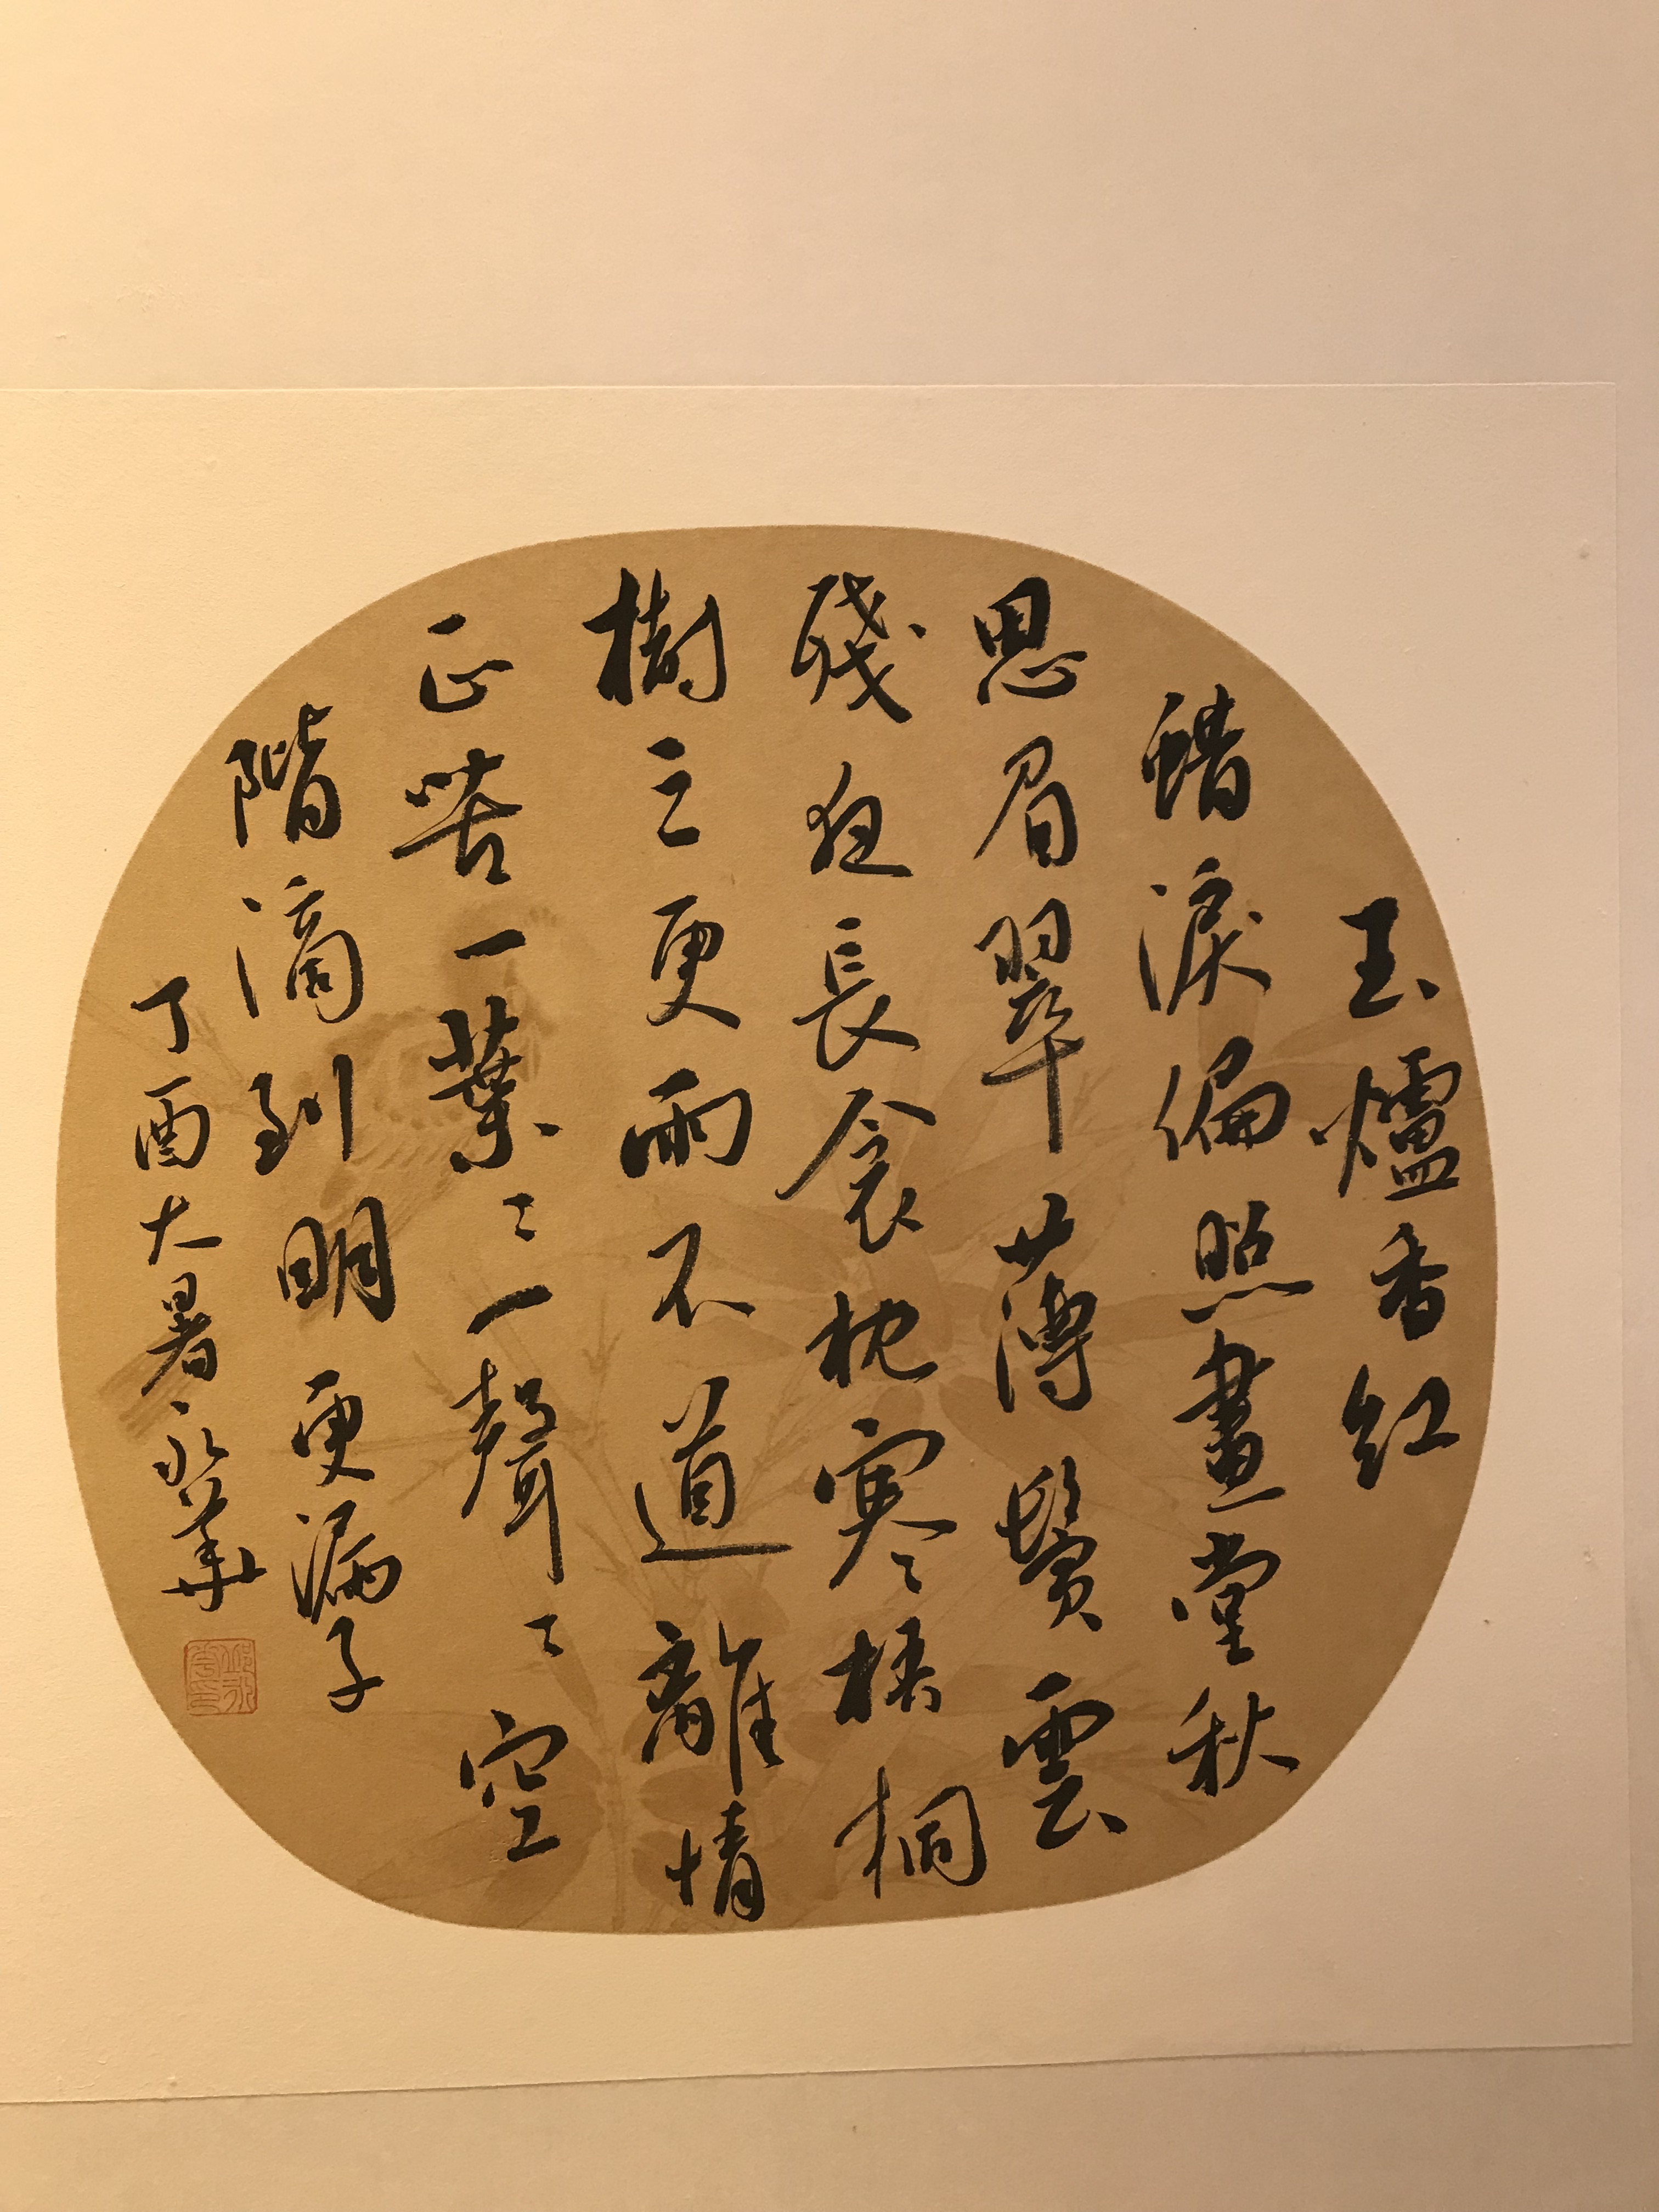 玉爐香紅
蜡淚偏照畫堂秋
思眉翠薄鬢雲
殘夜長衾枕寒梧桐
樹三更雨不道離情
正苦一葉〻一聲〻空
階滴到明 更漏子
丁酉大暑永華